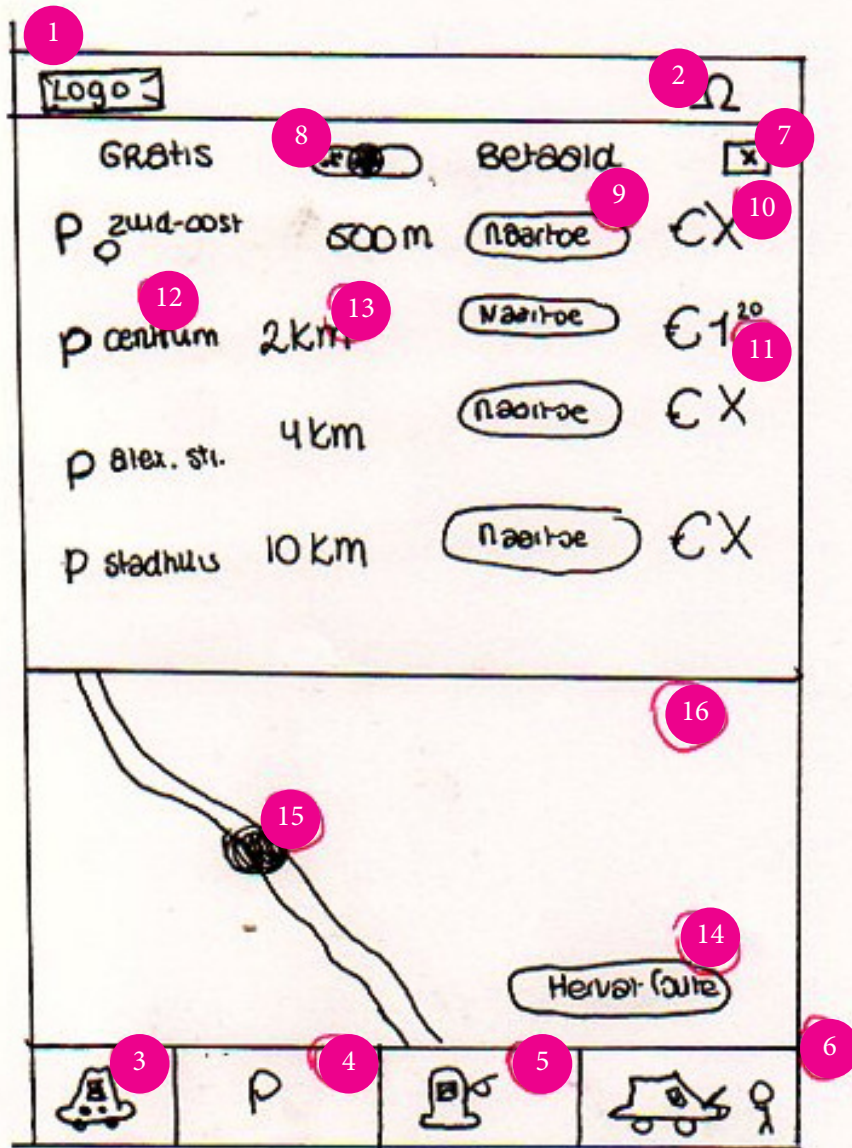 1
Logo
2
8
7
Gratis
Betaald
9
10
P zuid-oost 500m naartoe €X
12
13
P centrum 2km Naartoe €1,20
11
P alex. str. 4km naartoe €X
P stadhuis 10 km naartoe €X
16
15
14
Hervat route
3
4
5
6
P